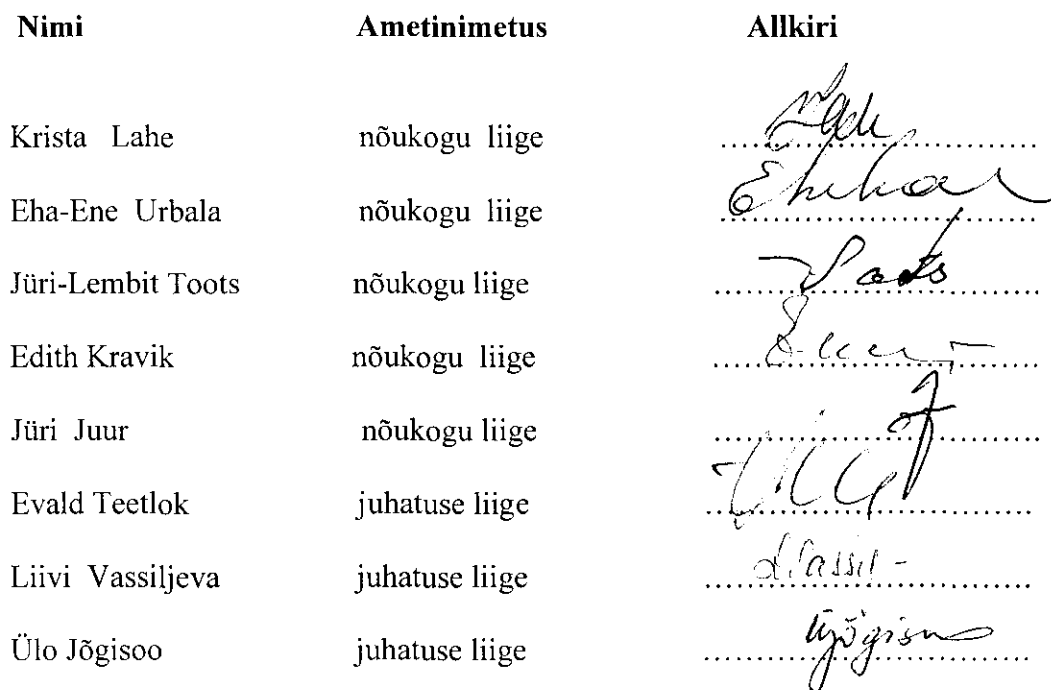 Nimi Ametinimetus Allkiri
Krista Lahe nõukogu liige
Eha-Ene Urbala nõukogu liige
Jüri-Lembit Toots nõukogu liige
Edith Kravik nõukogu liige
Jüri Juur nõukogu liige
Evald Teetlok juhatuse liige
Liivi Vassiljeva juhatuse liige
Ülo Jõgisoo juhatuse liige